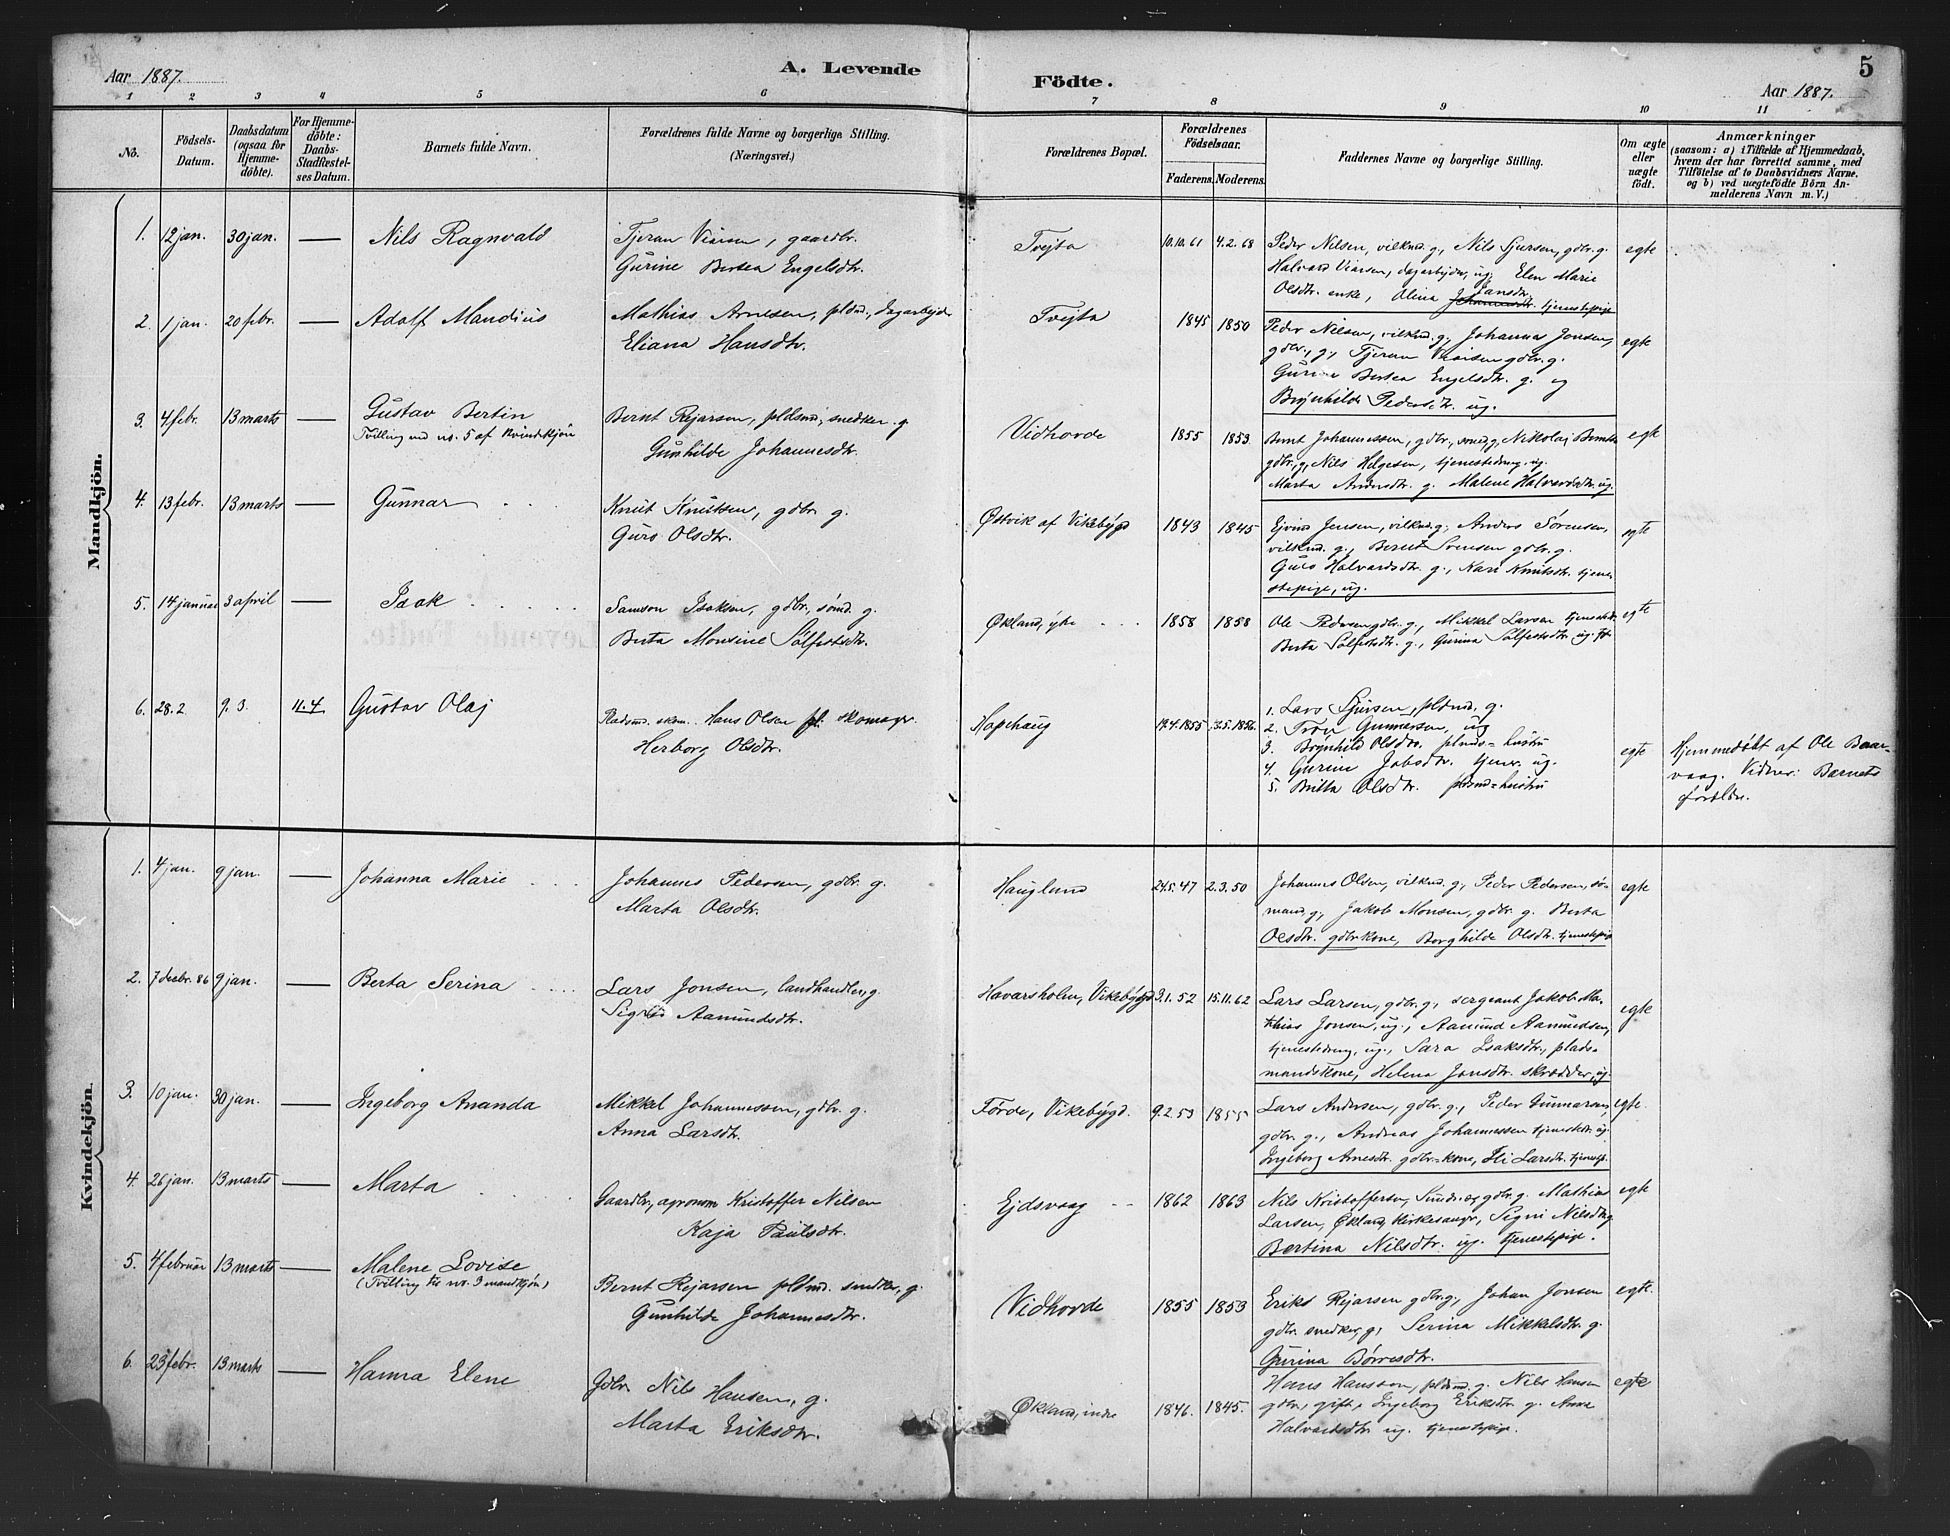 Aar 1887.
A. Levende
Födte.
5
Aar 1887.
1 2 3 4 5 6 7 8 9 10 11
No.
Födsels-
Datum.
Daabsdatum
(ogsaa for
Hjemme-
döbte).
For Hjemme-
döbte:
Daabs-
Stadfæstel-
ses Datum.
Barnets fulde Navn.
Forældrenes fulde Navne og borgerlige Stilling.
(Næringsvei.)
Forældrenes Bopæl.
Forældrenes
Födselsaar.
Faderens. Moderens.
Faddernes Navne og borgerlige Stilling.
Om ægte
eller
uægte
födt.
Anmærkninger
(saasom: a) i Tilfælde af Hjemmedaab,
hvem der har forrettet samme, med
Tilföielse af to Daabsvidners Navne.
og b) ved uægtefödte Börn An-
melderens Navn m. V.)
Mandkjön.
1. 12 jan. 30 jan. — Nils Ragnvald
Tjeran Viarsen, gaardbr.
Gurine Bertea Engelsdtr.
Tvejta
10.10.61 4.2.68
Peder Nilsen, vilknd. g., Nils Sjursen, gdbr. g.
Halvard Viarsen, dagarbejder, ug. Elen Marie
Olsdtr. enke, Olina Jansdtr. tjenestepige
egte
2. 1 jan. 20 febr. — Adolf Mandius
Mathias Arnesen, pldmd., dagarbejder
Eliana Hansdtr.
Tvejta
1845 1850
Peder Nilsen, vilknd. g., Johannes Jonsen,
gdbr., g., Tjeran Viarsen gdbr. g.
Gurine Bertea Engelsdtr. g. og
Brynhilde Pedersdtr. ug.
egte
3. 4 febr. 13 marts — Gustav Bertin
Tvilling med no. 5 af Kvindekjön
Bernt Rejarsen, pldsmd., snedker. g.
Gunhilde Johannesdtr.
Vidhovde
1855 1853
Bernt Johannessen, gdbr., smed, g., Nikolaj
gdbr., g., Nils Helgesen, tjenestedreng. ug.
Marta Andersdtr. g. Malene Halvardsdtr. ug.
egte
4. 13 febr. 13 marts — Gunnar
Knut Knutsen, gdbr. g.
Guro Olsdtr.
Østvik af Vikebygd
1843 1845
Ejvind Jensen, vilknd. g., Anders Sørensen,
vilknd. g., Bernt Svensen gdbr. g.
Guro Halvardsdtr. g., Kari Knutsdtr. tjene-
stepige, ug.
egte
5. 14 januar 3 april — Isak
Samson Isaksen, gdbr., sømd. g.
Berta Monsine Sølfestsdtr.
Økland, ytre
1858 1858
Ole Pedersen gdbr. g., Mikkel Larsen
Berta Sølfestsdtr. g., Gurina Sølfestsdtr ug.
egte
6. 28.2 9.3. 11.4 Gustav Olaj
Pladsmd. skom. Hans Olsen skomager
Herborg Olsdtr.
Hapehaug
17.4.1855 3.5.1856.
1. Lars Sjursen, pldmd. g.
2. Gunnarsen, ug
3. Brynhild Olsdtr. pldmds=hustru
4. Gurine Jobsdtr. tjener. ug.
5. Britta Olsdtr. pldmd=hustru
egte
Hjemmedøbt af Ole Baar-
vaag. Vidner: Barnets
forældre.
Kvindekjön.
1. 4 jan. 9 jan. — Johanna Marie
Johannes Pedersen, gdbr. g.
Marta Olsdtr.
Haugland
24.5.47 2.3.50
Johannes Olsen, vilknd. g., Peder Pedersen, sø-
mand, g., Jakob Monsen, gdbr. g. Berta
Olsdtr. gdbrkone, Borghilde Olsdtr. tjenestepige
egte
2. 7 decbr. 86 9 jan. — Berta Serina
Lars Jonsen, landhandler, g.
Sigrid Aamundsdtr.
Havarsholm, Vikebygd
9.1.52 15.11.62
Lars Larsen, gdbr. g., sergeant Jakob Ma-
thias Jonsen, ug., Aamund Aamundsen,
tjenestedreng, ug., Sara Isaksdtr., plads-
mandskone, Helena Jonsdtr. skrædder, ug.
egte
3. 10 jan. 30 jan. — Ingeborg Ananda
Mikkel Johannessen, gdbr. g.
Anna Larsdtr.
Førde, Vikebygd.
9.2.53 1855
Lars Andersen, gdbr. g., Peder Gunnarsen,
gdbr. g., Andreas Johannessen tjenestedr. ug.
Ingeborg Arnesdtr. gdbr=kone, Eli Larsdtr. tjenestp.
egte.
4. 26 jan. 13 marts — Marta
Gaardbr., agronom Kristoffer Nilsen
Kaja Paulsdtr.
Ejdsvaag
1862 1863
Nils Kristoffersen, Smed og gdbr. g. Mathias
Larsen, Økland, kirkesangr., Signi Nilsdtr. g
Bertina Nilsdtr. ug. tjenestepige.
egte
5. 4 februar 13 marts — Malene Lovise
(Tvilling til no. 3 mandkjön)
Bernt Rejarsen pldmd. snedker, g.
Gunhilde Johannesdtr.
Vidhovde
1855 1853
Eriks Rejarsen gdbr. g., Johan Jonsen
gdbr. snedker, g., Serina Mikkelsdtr. g.
Gurina Børresdtr.
egte.
6. 23 febr. 13 marts — Hanna Elene
Gdbr. Nils Hansen, g.
Marta Eriksdtr.
Økland, indre
1846. 1845.
Hans Hansson, pldmd. g. Nils Hansen
gdbr. gift, Ingeborg Eriksdtr g. Anna
Halvardsdtr ug. tjenestepige.
egte